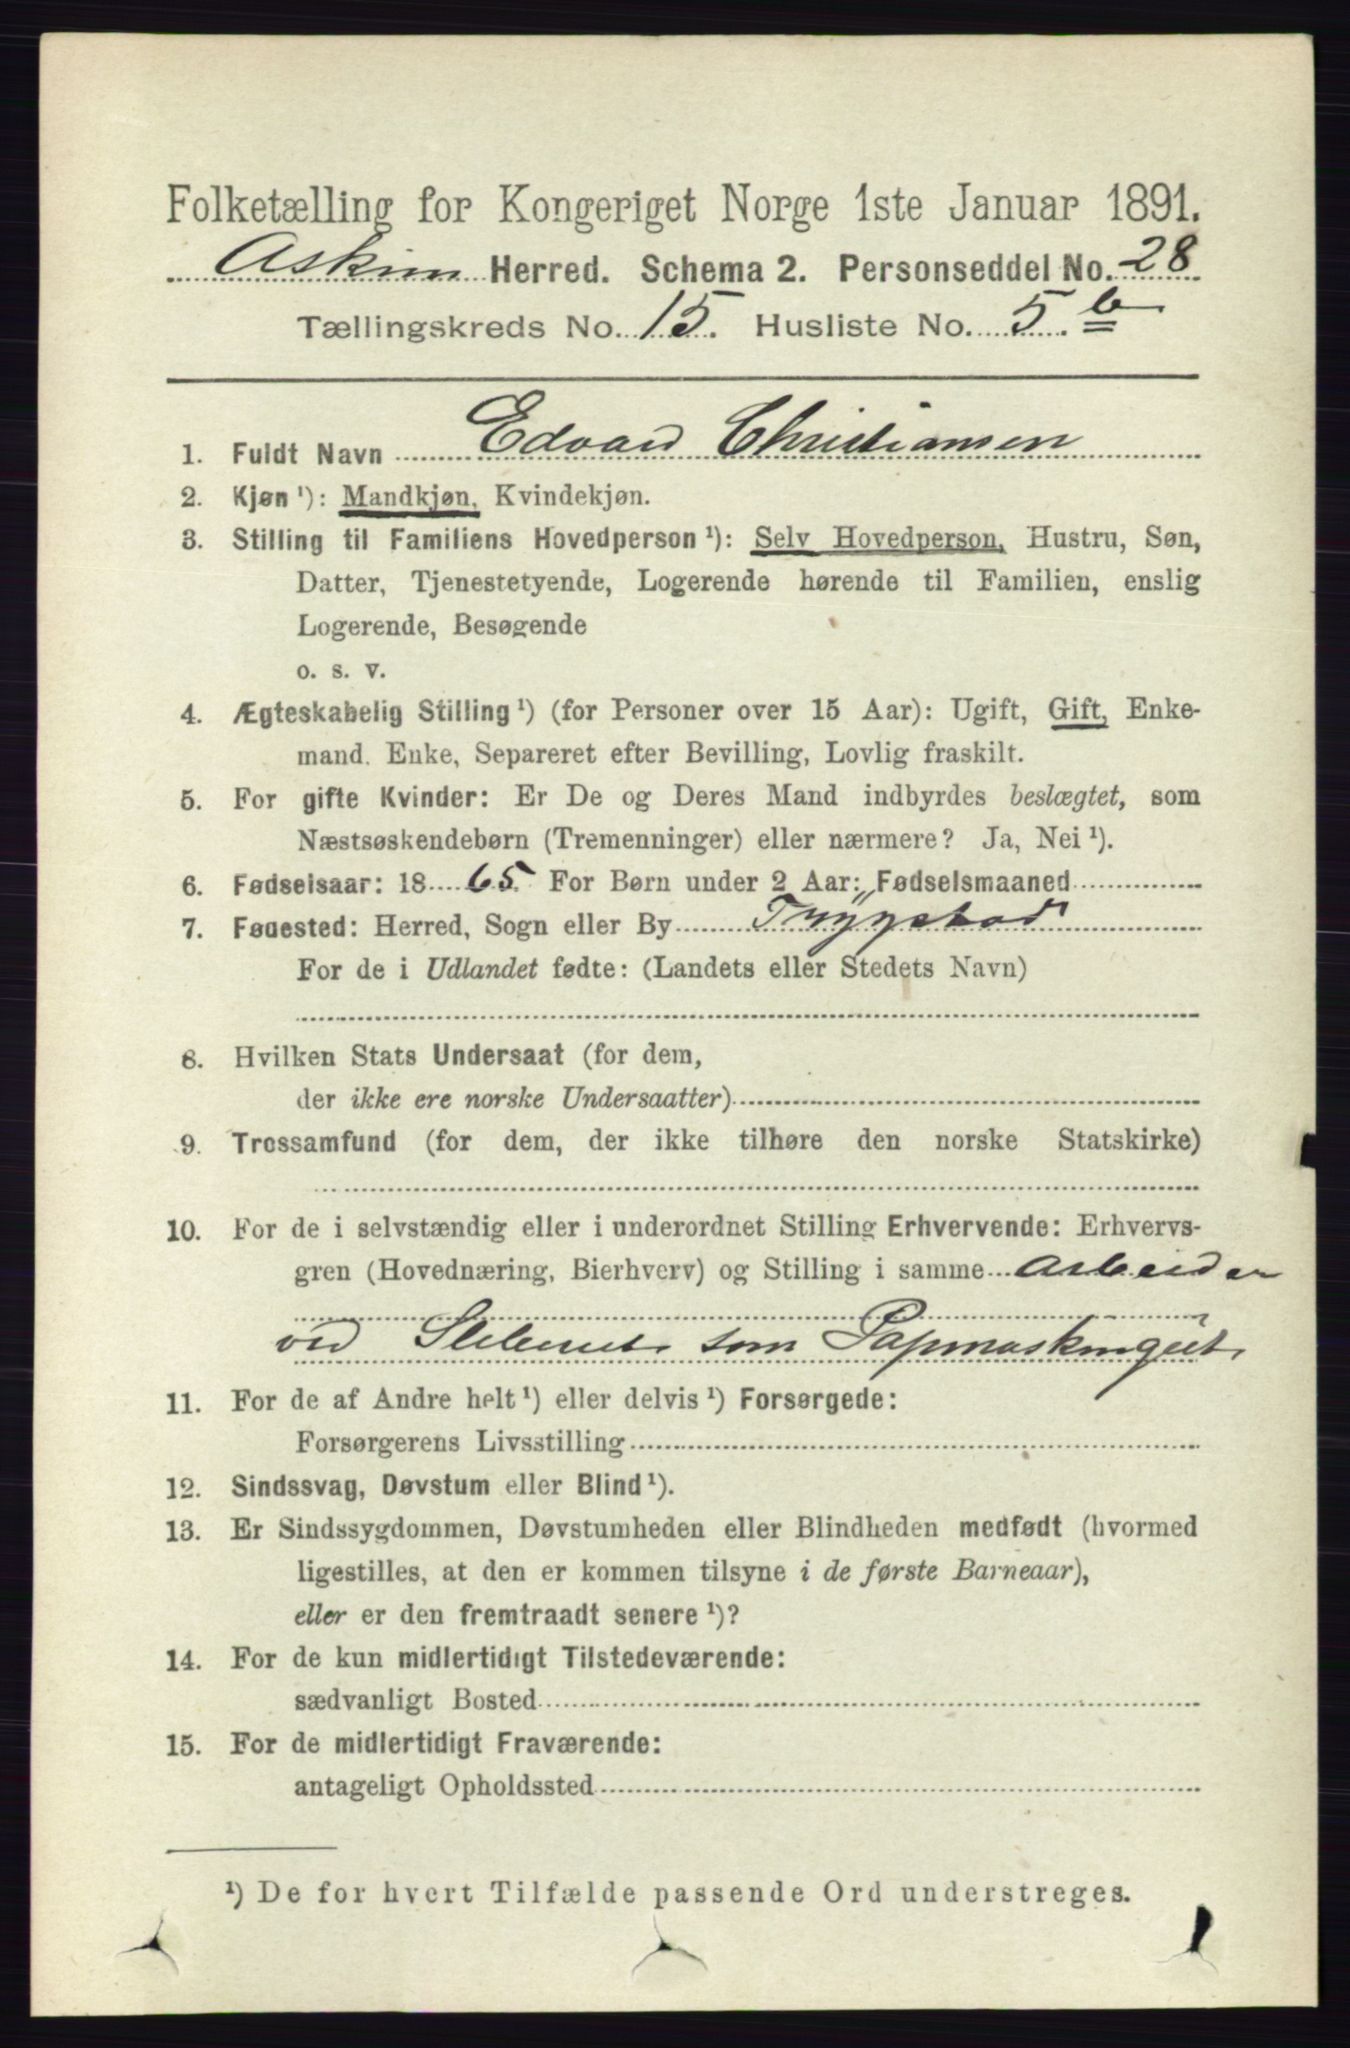 Folketælling for Kongeriget Norge 1ste Januar 1891.
Askim Herred. Schema 2. Personseddel No. 28
Tællingskreds No. 15. Husliste No. 5. b
1. Fuldt Navn Edvard Christiansen
2. Kjøn ¹): Mandkjøn, Kvindekjøn.
3. Stilling til Familiens Hovedperson ¹): Selv Hovedperson, Hustru, Søn,
Datter, Tjenestetyende, Logerende hørende til Familien, enslig
Logerende, Besøgende
o. s. v.
4. Ægteskabelig Stilling ¹) (for Personer over 15 Aar): Ugift, Gift, Enke-
mand. Enke, Separeret efter Bevilling, Lovlig fraskilt.
5. For gifte Kvinder: Er De og Deres Mand indbyrdes beslægtet, som
Næstsøskendebørn (Tremenninger) eller nærmere? Ja, Nei ¹).
6. Fødselsaar: 18 65. For Børn under 2 Aar: Fødselsmaaned
7. Fødested: Herred, Sogn eller By Trygstad
For de i Udlandet fødte: (Landets eller Stedets Navn)
8. Hvilken Stats Undersaat (for dem,
der ikke ere norske Undersaatter)
9. Trossamfund (for dem, der ikke tilhøre den norske Statskirke)
10. For de i selvstændig eller i underordnet Stilling Erhvervende: Erhvervs-
gren (Hovednæring, Bierhverv) og Stilling i samme Arbeider
ved Sliberiet som Papmaskingut
11. For de af Andre helt ¹) eller delvis ¹) Forsørgede:
Forsørgerens Livsstilling
12. Sindssvag, Døvstum eller Blind ¹).
13. Er Sindssygdommen, Døvstumheden eller Blindheden medfødt (hvormed
ligestilles, at den er kommen tilsyne i de første Barneaar),
eller er den fremtraadt senere ¹)?
14. For de kun midlertidigt Tilstedeværende:
sædvanligt Bosted
15. For de midlertidigt Fraværende:
antageligt Opholdssted
¹) De for hvert Tilfælde passende Ord understreges.